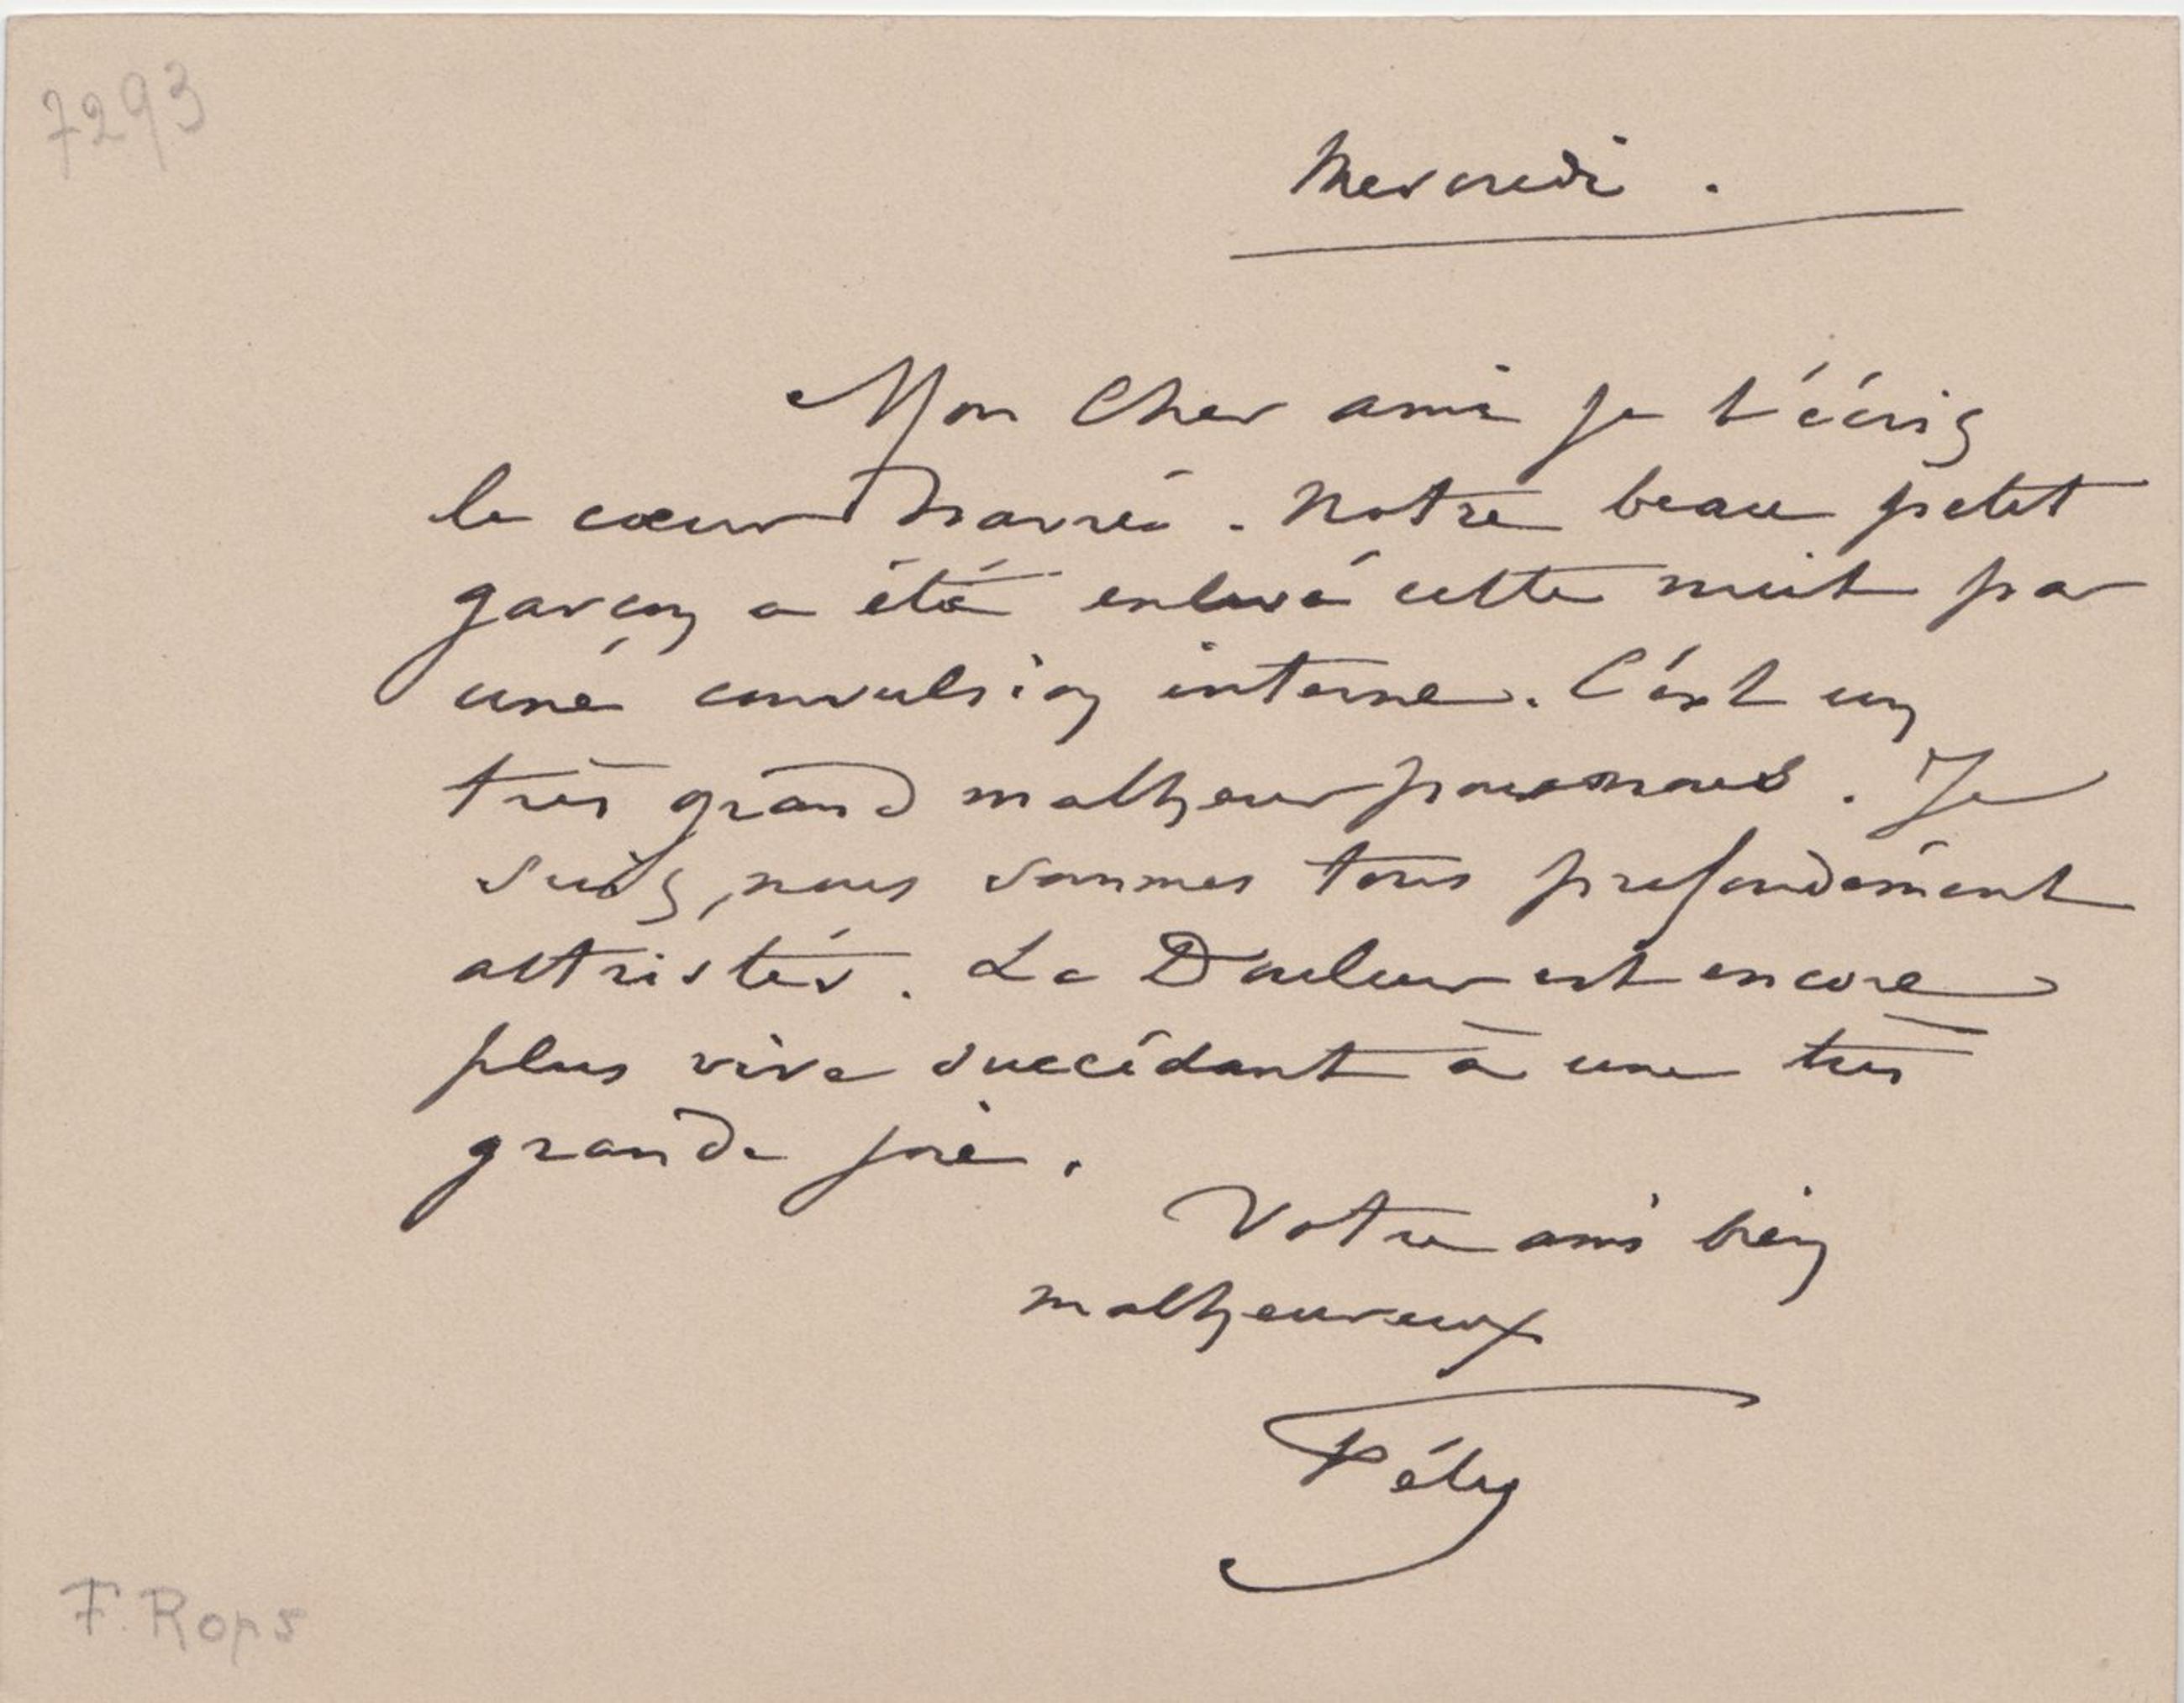 7293
Mercredi .
Mon Cher ami je t'écris
le cœur navré . Notre beau petit
garçon a été enlevé cette nuit par
une convulsion interne. C'est un
très grand malheur pour nous . Je
suis, nous sommes tous profondément
attristés . La Douleur est encore
plus vive succédant à une très
grande joie .
Votre ami bien
malheureux
Fély
F. Rops